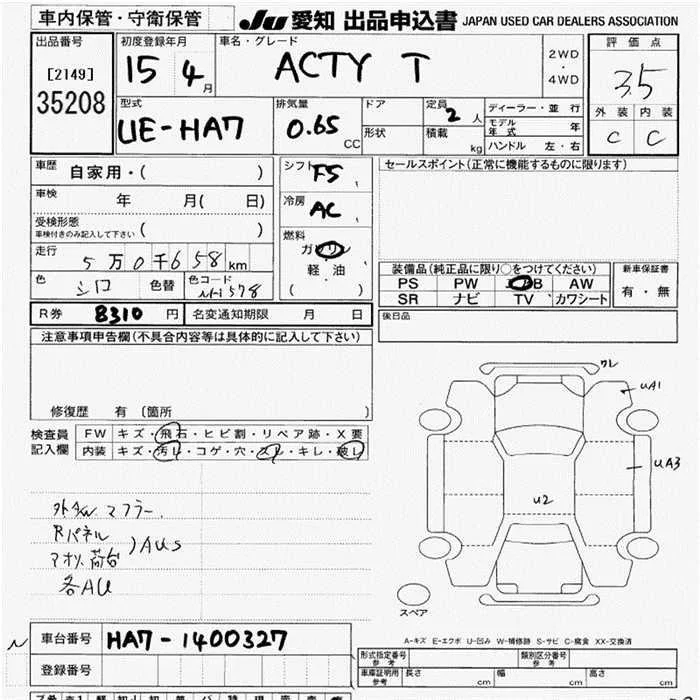 車内保管・守衛保管
JU 愛知 出品申込書 JAPAN USED CAR DEALERS ASSOCIATION
出品番号
[2149]
35208
初度登録年月
15 4 月
車名・グレード
ACTY T
2WD
・
4WD
評価点
3.5
外装 内装
C C
型式
UE-HA7
排気量
0.65 CC
ドア
形状
定員
2 人
積載 kg
ディーラー・並行
モデル年式 年
ハンドル 左・右
車歴 自家用・( )
車検 年 月( 日)
受検形態
車検付きのみ記入して下さい ( )
走行 5万0千658 km
色 シロ 色替 色コード NH578
シフト F5
冷房 AC
燃料
ガソリン
軽・油
( )
セールスポイント(正常に機能するものに限ります)
装備品(純正品に限り○をつけてください)
PS PW AB AW
SR ナビ TV カワシート
新車保証書
有・無
R券 8310 円 名変通知期限 月 日
後日品
注意事項申告欄(不具合内容等は具体的に記入して下さい)
修復歴 有 〔箇所 〕
検査員
記入欄
FW キズ・飛石・ヒビ割・リペア跡・X要
内装 キズ・汚レ・コゲ・穴・スレ・キレ・破レ
ワレ
UA1
UA3
U2
マフラー
Rパネル
アオリ、荷台
)AUS
各AU
スペア
A-キズ E-エクボ U-凹み W-補修跡 S-サビ C-腐食 XX-交換済
車台番号 HA7-1400327
登録番号
形式指定番号
参考
類別区分番号
参考
車庫証明用
参考
長さ cm 幅 cm 高さ cm